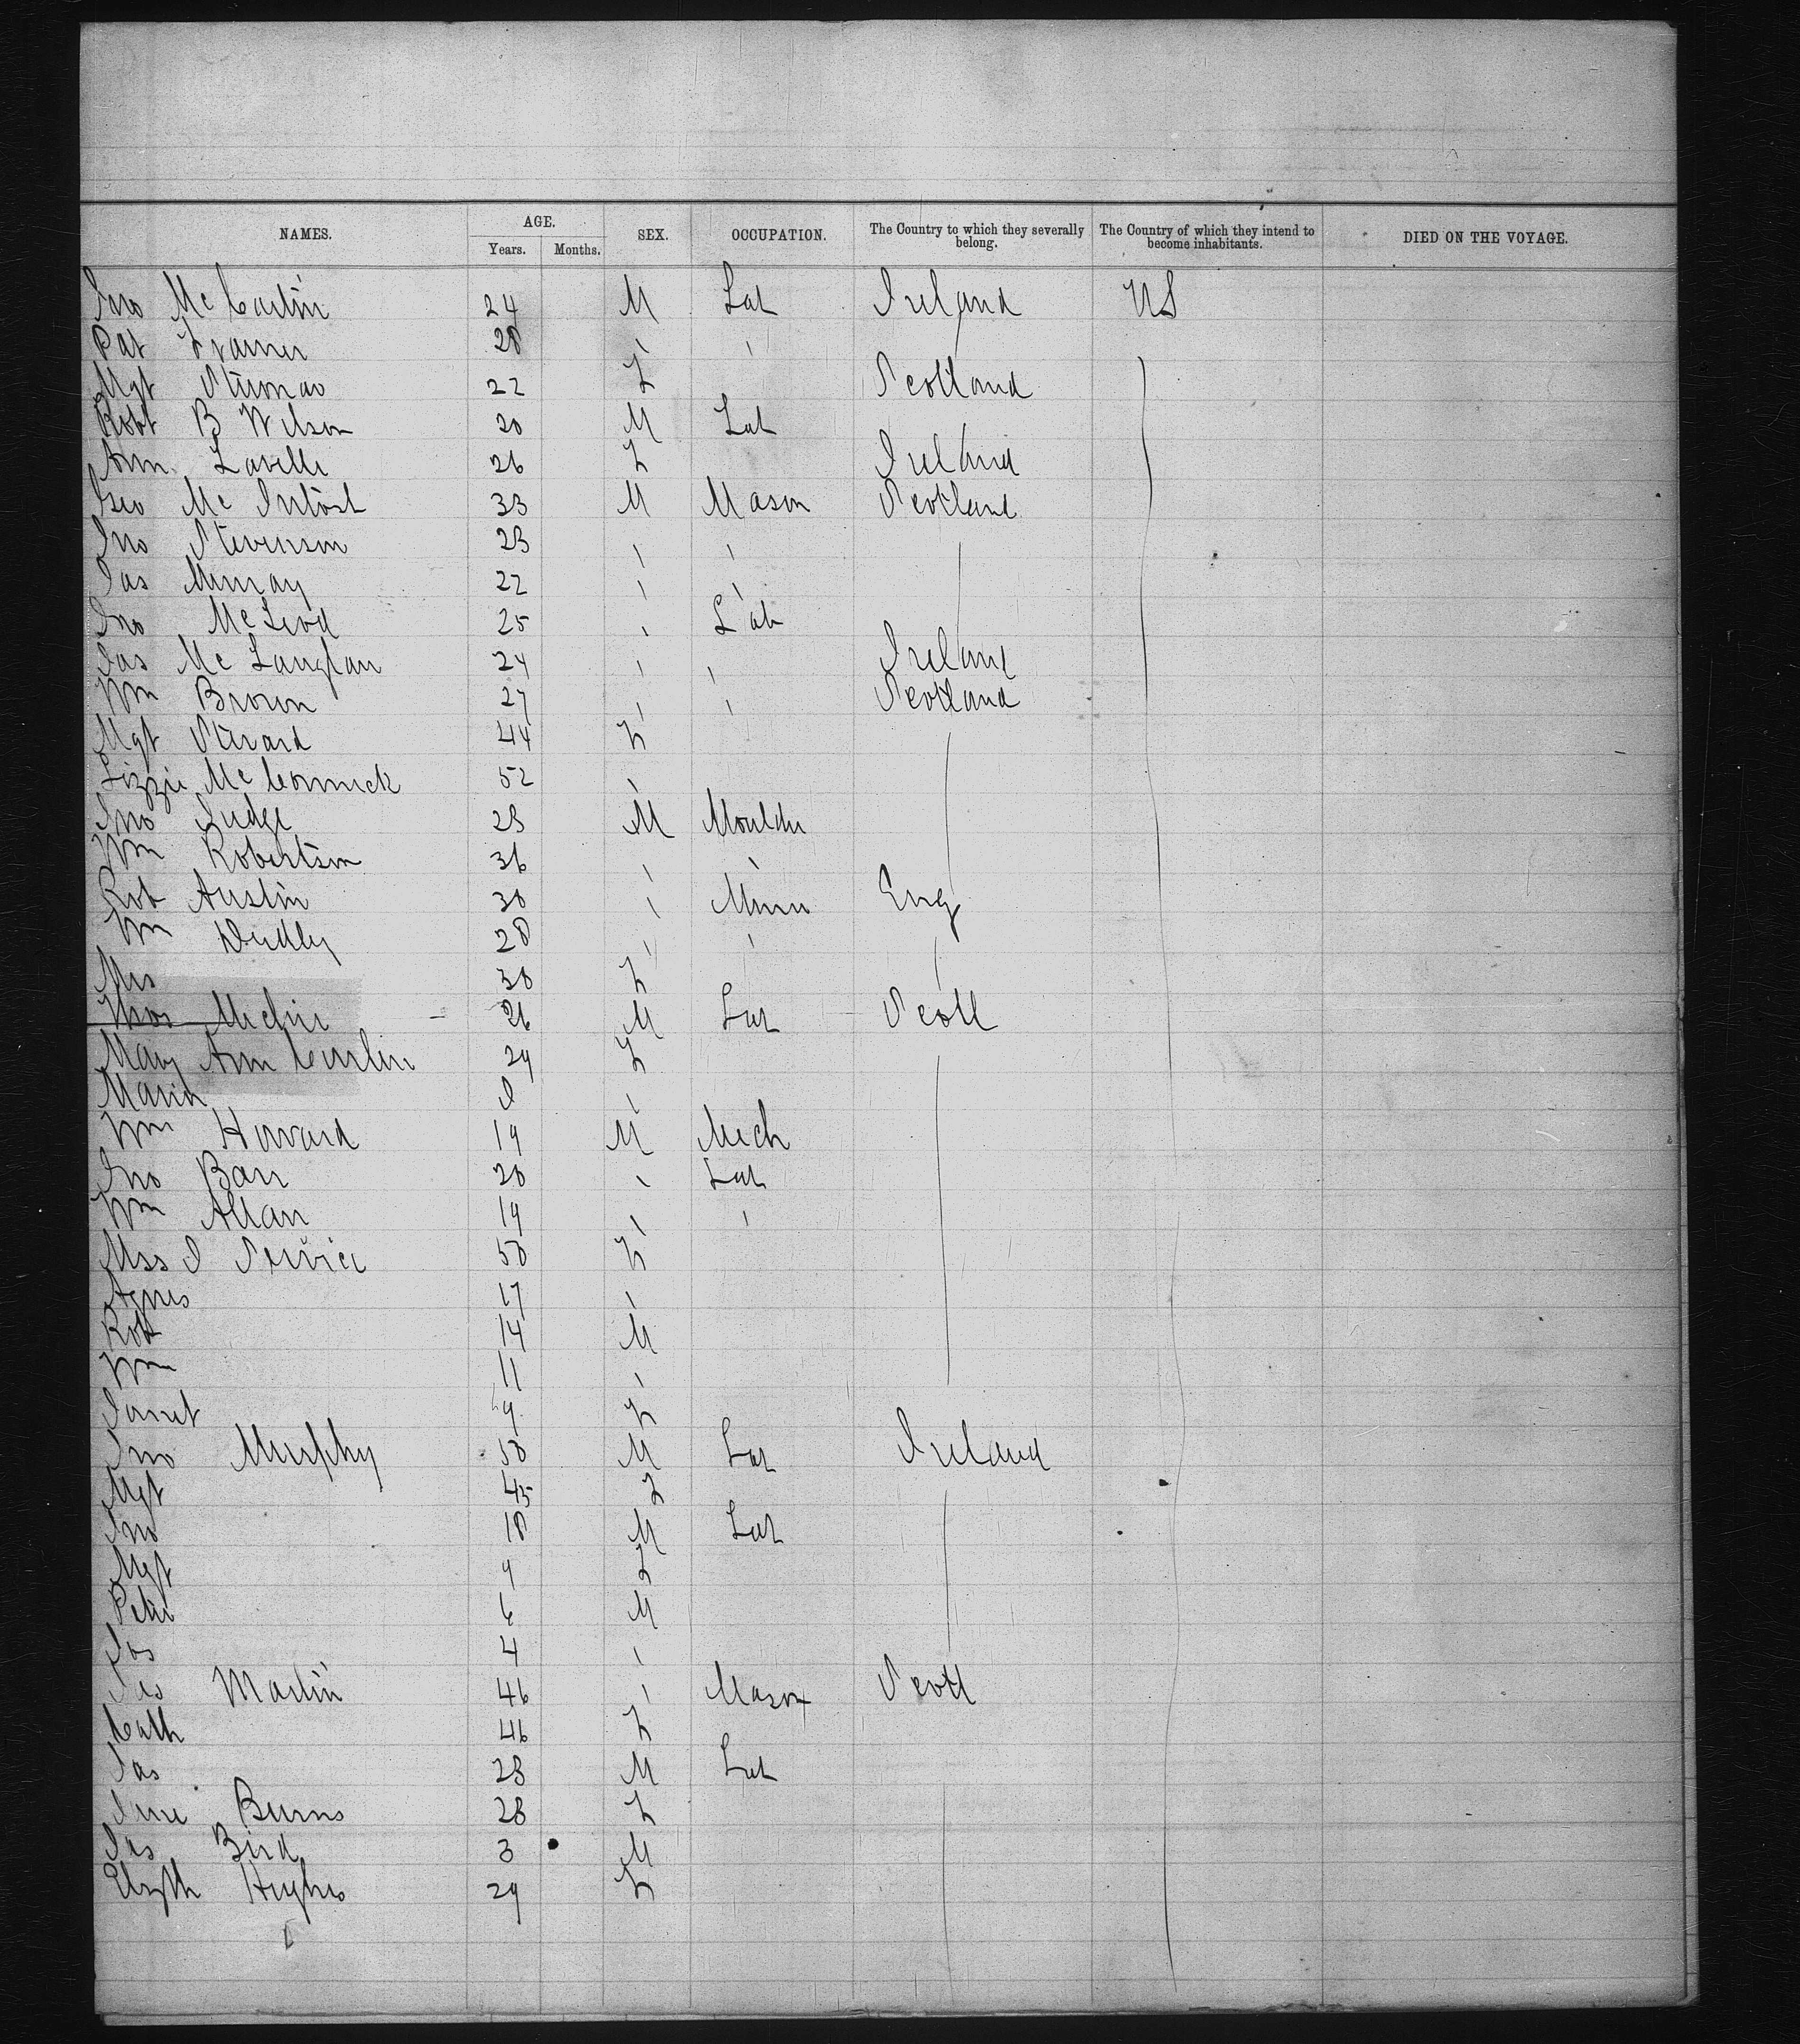 NAMES. AGE. SEX. OCCUPATION. The Country to which they severally belong. The Country of which they intend to become inhabitants. DIED ON THE VOYAGE.
Years. Months.
Jno Mc Carlin 24 M Lab Ireland US
Pat 28 " "
Mgt 22 F Scotland
Robt B Wilson 20 M Lab
Ann Lavelle 26 F Ireland
Geo Mc Intosh 33 M Mason Scotland
Jno Stevenson 23 " "
Jas Murray 22 " "
Jno McLeod 25 " Lab
Jas Mc Langlan 24 " " Ireland
Wm Brown 27 " " Scotland
Mgt Steward 44 F
Lizzie McCormick 52 "
Jno Judge 23 M Moulder
Wm Robertson 36 " "
Rob Austin 30 " Miner Eng
Wm Dudley 28 " "
Mrs 30 F
Thos Mechie 26 M Lab Scotl
Mary Ann Carlin 24 F
Maria "
Wm Howard 19 M Mech
Jno Barr 20 " Lab
Wm Allan 19 " "
Mss J Service 50 F
Agnes 17 "
Robt 14 M
Wm 11 "
Janet 9 F
Jno Murphy 50 M Lab Ireland
Mgt 45 F
Jno 18 M Lab
Mgt 9 F
Peter 6 M
Jos 4 "
Jas Martin 46 " Mason Scotl
Cath 46 F
Jas 23 M Lab
Jane Burns 28 F
Jas Bird 3 M
Elizth Hughes 29 F